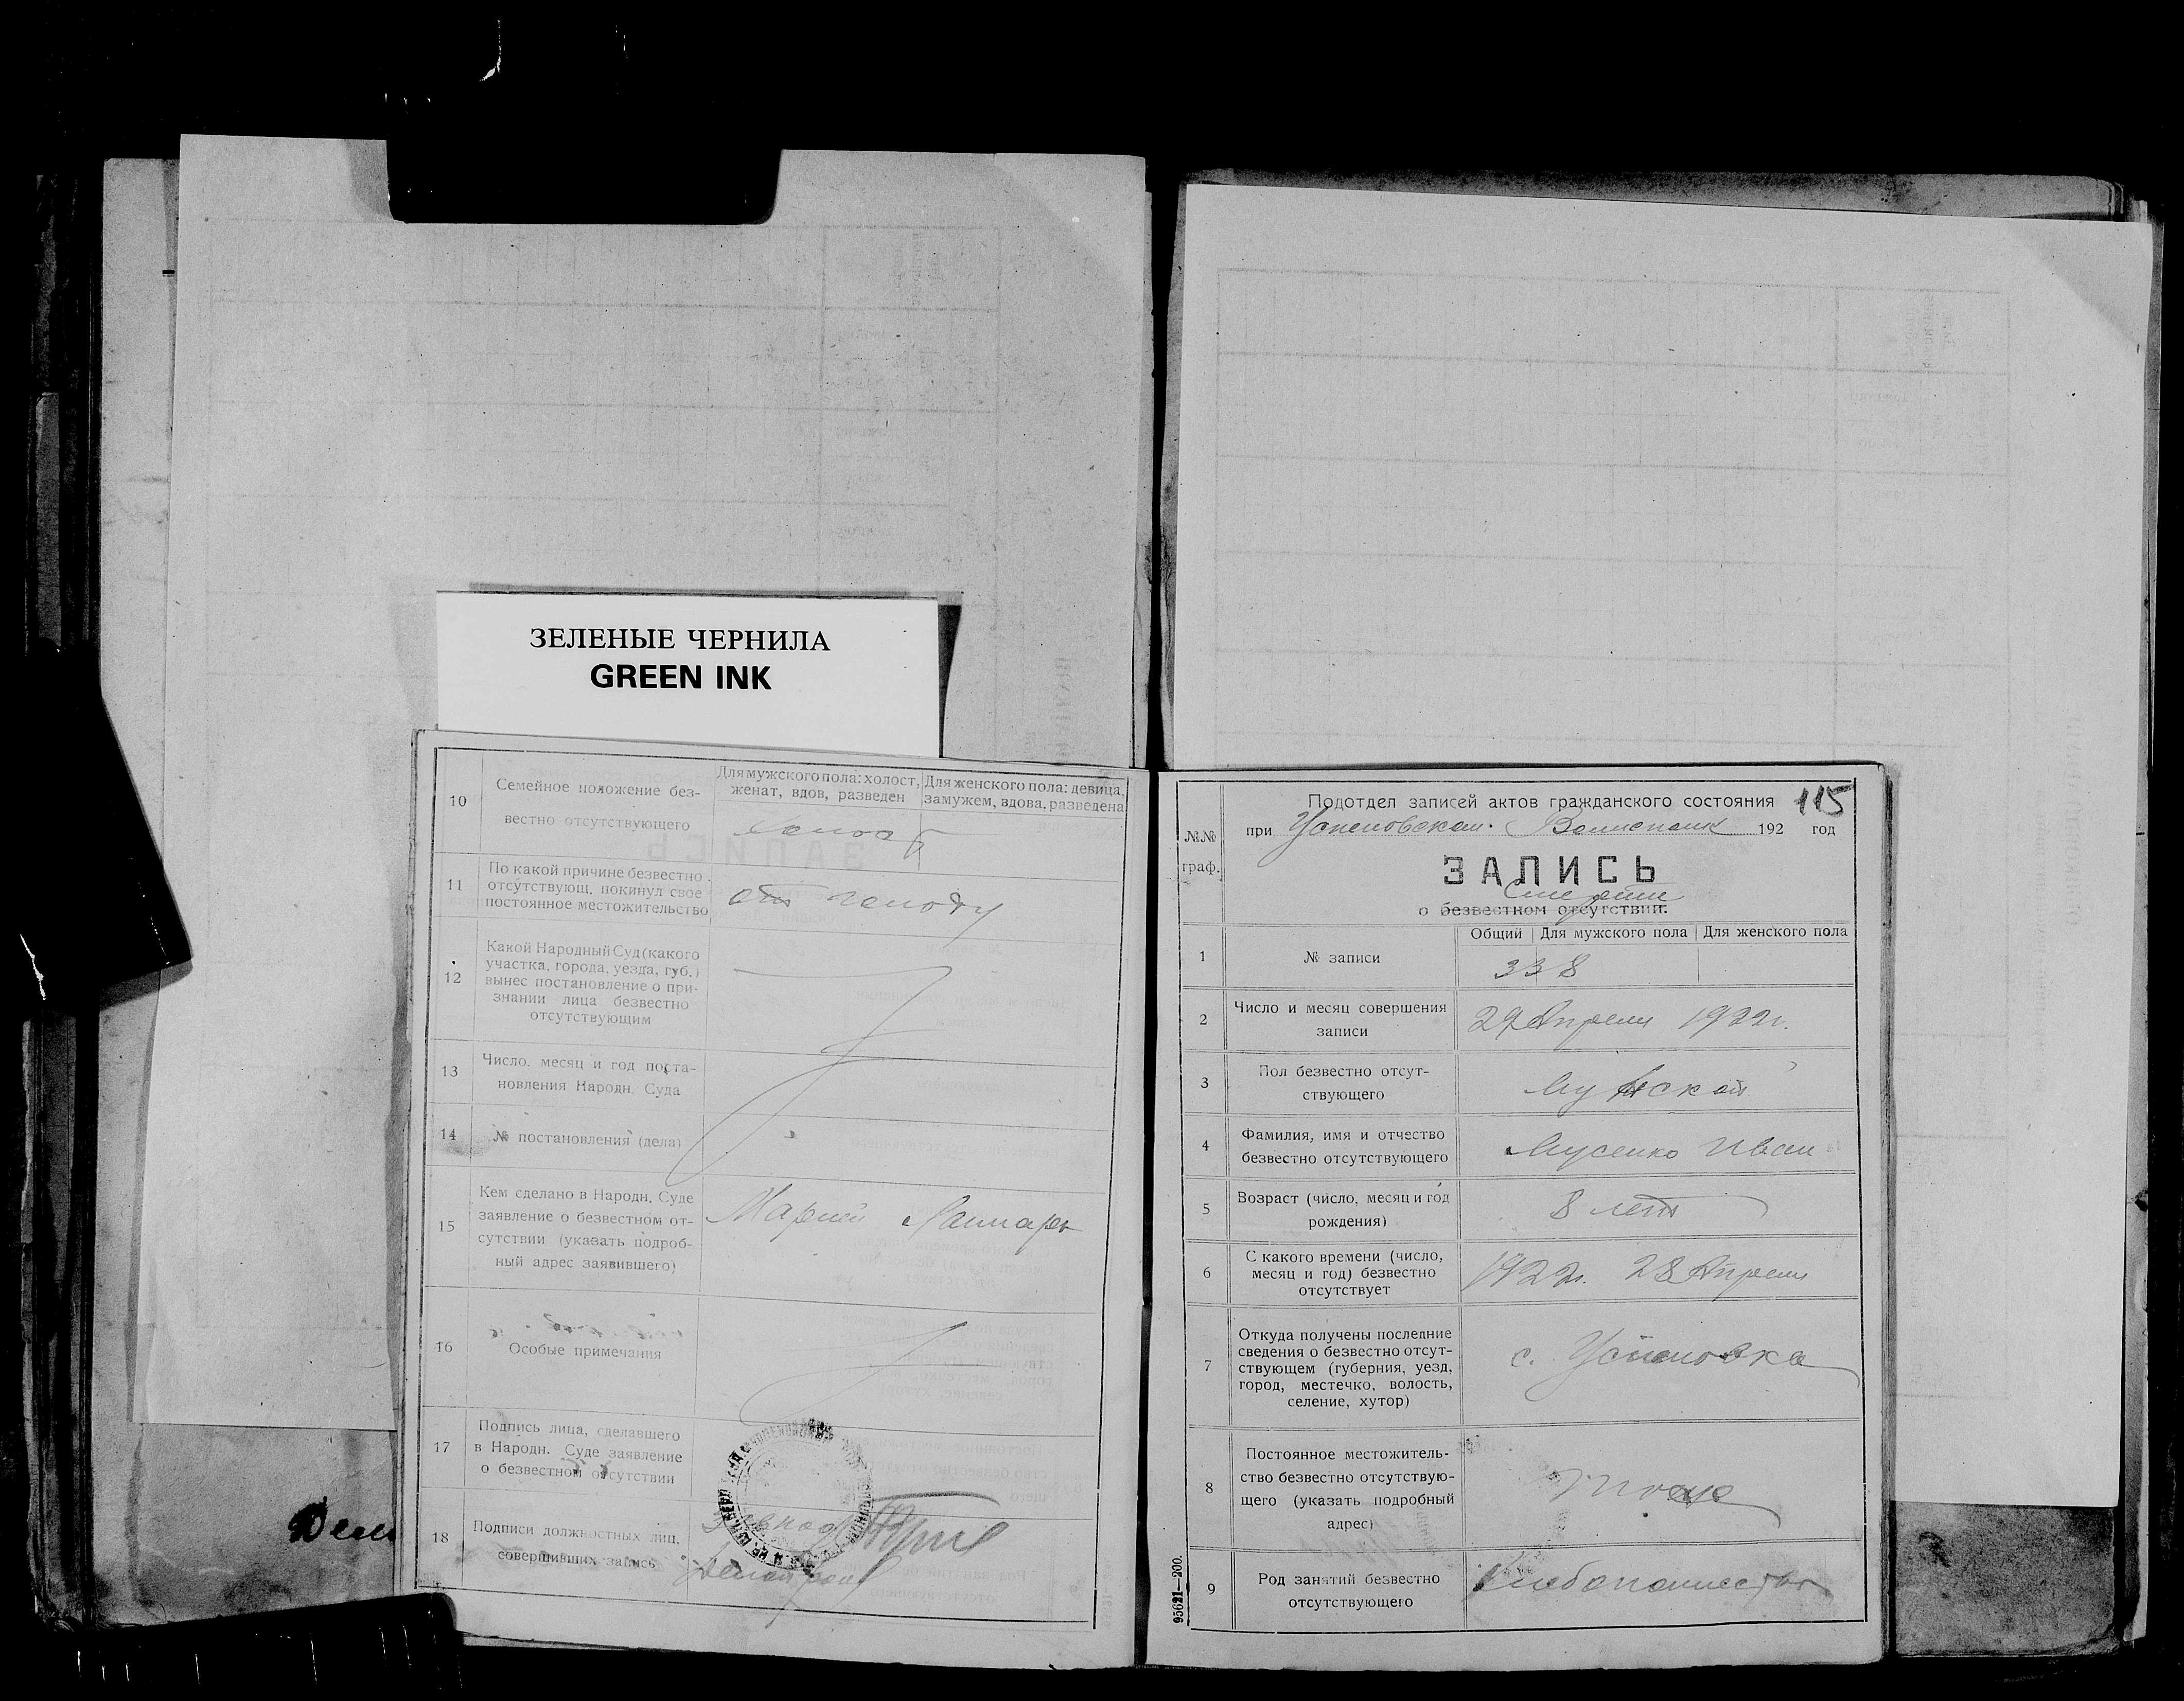 ЗЕЛЕНЫЕ ЧЕРНИЛА
GREEN INK
10
Семейное положение без-
вестно отсутствующего
Для мужского пола: холост,
женат, вдов, разведен
Для женского пола: девица,
замужем, вдова, разведена
Холост
11
По какой причине безвестно
отсутствующ. покинул свое
постоянное местожительство
от голоду
12
Какой Народный Суд (какого
участка, города, уезда, губ.)
вынес постановление о при-
знании лица безвестно
отсутствующим
13
Число, месяц и год поста-
новления Народн. Суда
14
№ постановления (дела)
15
Кем сделано в Народн. Суде
заявление о безвестном от-
сутствии (указать подроб-
ный адрес заявившего)
Марией
16
Особые примечания
17
Подпись лица, сделавшего
в Народн. Суде заявление
о безвестном отсутствии
18
Подписи должностных лиц,
совершивших запись
115
№№
граф.
Подотдел записей актов гражданского состояния
при Успеновском Волисполк 192 год
ЗАПИСЬ
Смерти
о безвестном отсутствии.
Общий Для мужского пола Для женского пола
1
№ записи
338
2
Число и месяц совершения
записи
29 Апреля 1922г.
3
Пол безвестно отсут-
ствующего
Мужской
4
Фамилия, имя и отчество
безвестно отсутствующего
Мусенко Иван
5
Возраст (число, месяц и год
рождения)
8 лет
6
С какого времени (число,
месяц и год) безвестно
отсутствует
1922г. 28 Апреля
7
Откуда получены последние
сведения о безвестно отсут-
ствующем (губерния, уезд,
город, местечко, волость,
селение, хутор)
с. Успеновка
8
Постоянное местожитель-
ство безвестно отсутствую-
щего (указать подробный
адрес)
9
Род занятий безвестно
отсутствующего
Хлебопашество
95621—200.